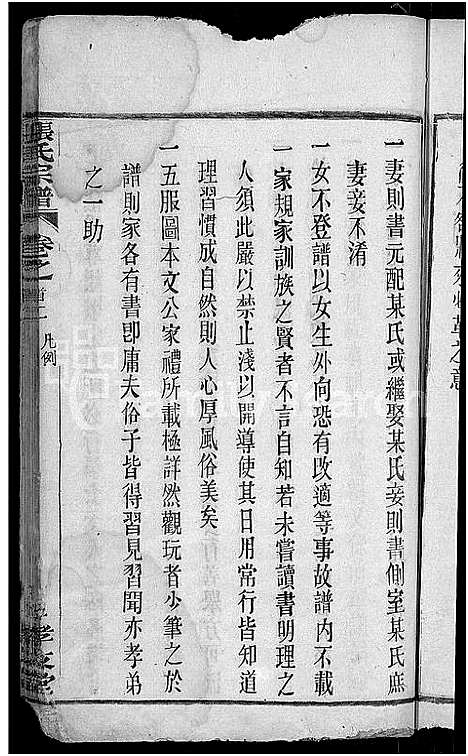 一妻則書元配某氏或繼娶某氏妾則書側室某氏庶
妻妾不淆
一女不登譜以女生外向恐有改適等事故譜內不載
一家規家訓族之賢者不言自知若未嘗讀書明理之
人須此嚴以禁止淺以開導使其日用常行皆知道
理習慣成自然則人心厚風俗美矣
一五服圖本文公家禮所載極詳然觀玩者少筆之於
譜則家各有書即庸夫俗子皆得習見習聞亦孝弟
之一助
張氏宗譜 卷之首二 凡例 孝友堂